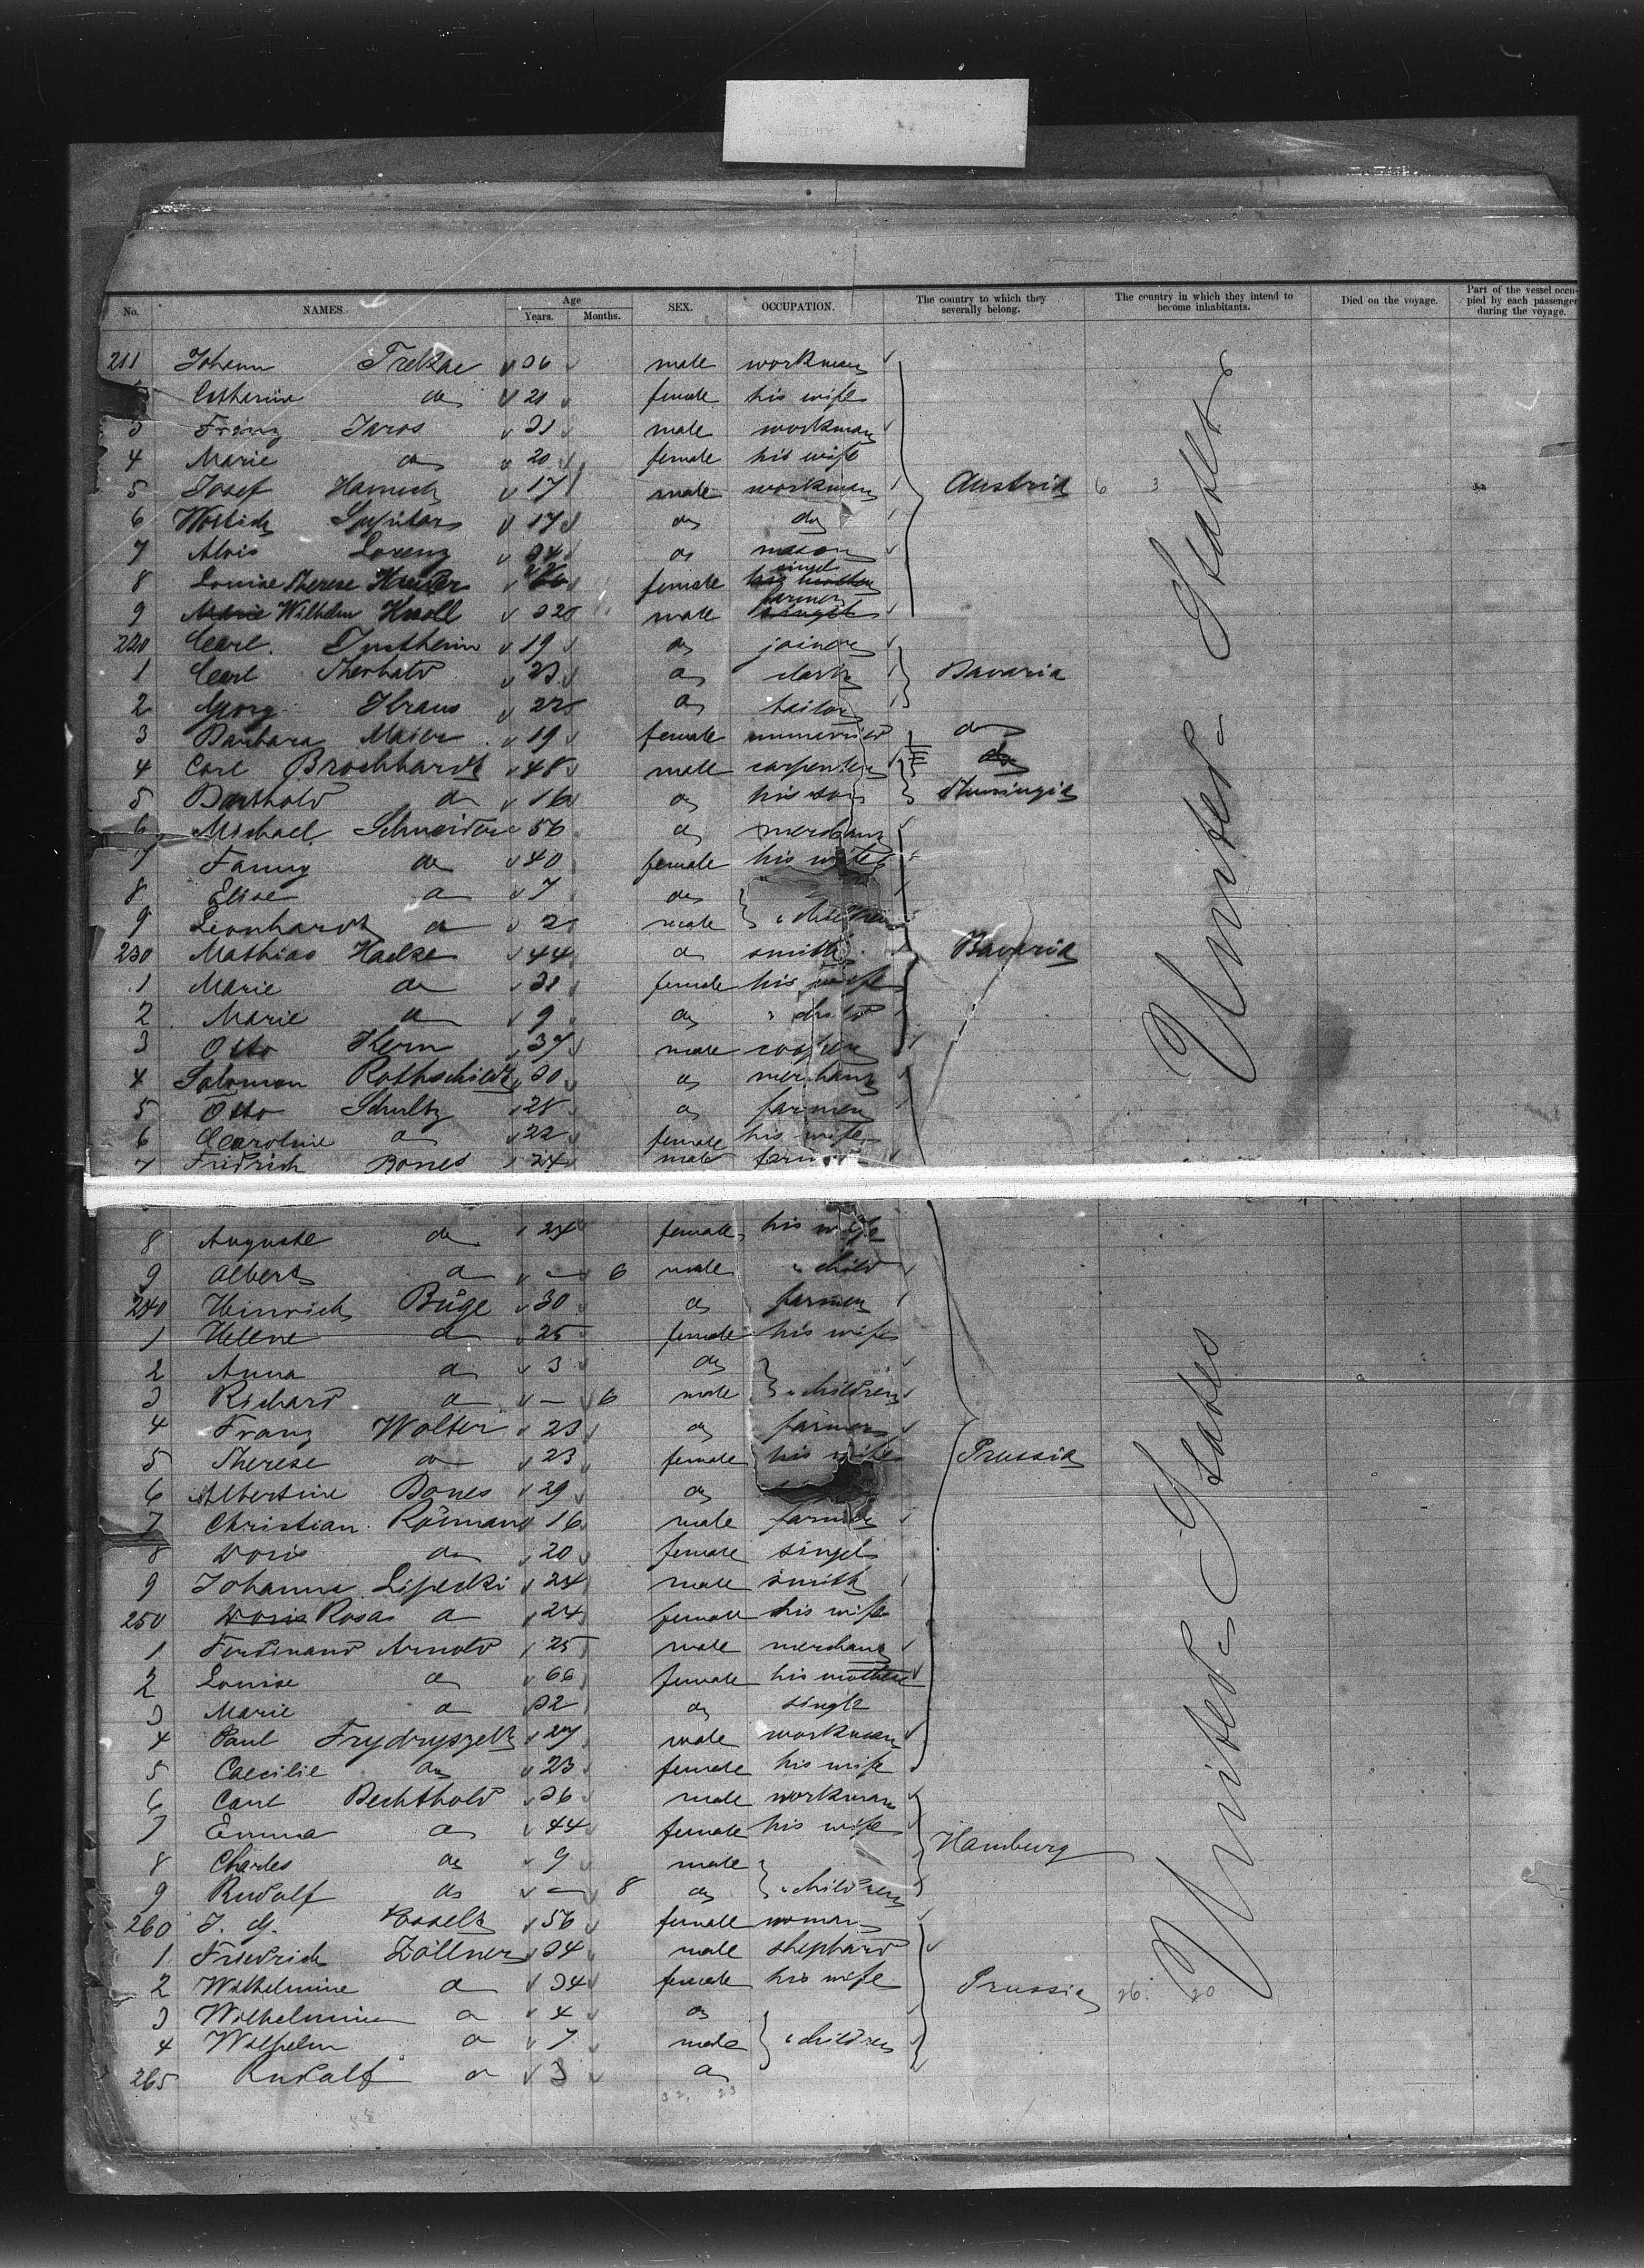 No. NAMES. Age Years. Months. SEX. OCCUPATION. The country to which they severally belong. The country in which they intend to become inhabitants. Died on the voyage. Part of the vessel occupied by each passenger during the voyage.
211 Johann 36 male workman
Catharina do 21 female his wife
3 Franz Jaros 31 male workman
4 Marie do 20 female his wife
5 Josef 17 male workman Austria 6 3
6 17 do do
7 Alois Lorenz 34 do mason
8 Louise Therese female singel his mother
9 Marie Wilhelm Knoll 32 male farmer singel
220 Carl 19 do joiner
1 Carl 23 do clerk Bavaria
2 Georg Kraus 22 do tailor
3 Barbara Maier 19 female do
4 Carl Brockhardt 48 male carpenter do
5 Barthold do 16 do his son Thuringia
6 Michael Schneider 56 do merchant
7 Fanny do 40 female his wife
8 Elise do 7 do
9 Leonhardt do 2 male " children
230 Mathias Hacke 44 do smith Bavaria
1 Marie do 31 female his wife
2 Marie do 9 do " child
3 Otto Kern 37 male cooper
4 Salomon Rothschild 30 do merchant
5 Otto Schultz 28 do farmer
6 Caroline do 22 female his wife
7 Fridrich Bones 24 male farmer
8 Auguste do 24 female his wife
9 Albert do — 6 male " child
240 Heinrich Büge 30 do farmer
1 Helene do 25 female his wife
2 Anna do 3 do
3 Richard do — 6 male " children
4 Franz Wolter 23 do farmer
5 Therese do 23 female his wife Prussia
6 Albertine Bones 29 do
7 Christian Römann 16 male farmer
8 Doris do 20 female singel
9 Johann Lipecki 24 male smith
250 Doris Rosa do 24 female his wife
1 Ferdinand Arnold 25 male merchant
2 Louise do 66 female his mother
3 Marie do 32 do single
4 Paul Frydryszek 27 male workman
5 Caecilie do 23 female his wife
6 Carl Bechthold 36 male workman
7 Emma do 44 female his wife Hamburg
8 Charles do 9 male
9 Rudolf do — 8 do " children
260 J. G. 56 female woman
1 Friedrich Zöllner 34 male shephard
2 Wilhelmine do 34 female his wife Prussia 26. 20
3 Wilhelmine do 4 do
4 Wilhelm do 7 male " children
265 Rudolf do 3 do
32. 23
United States
United States